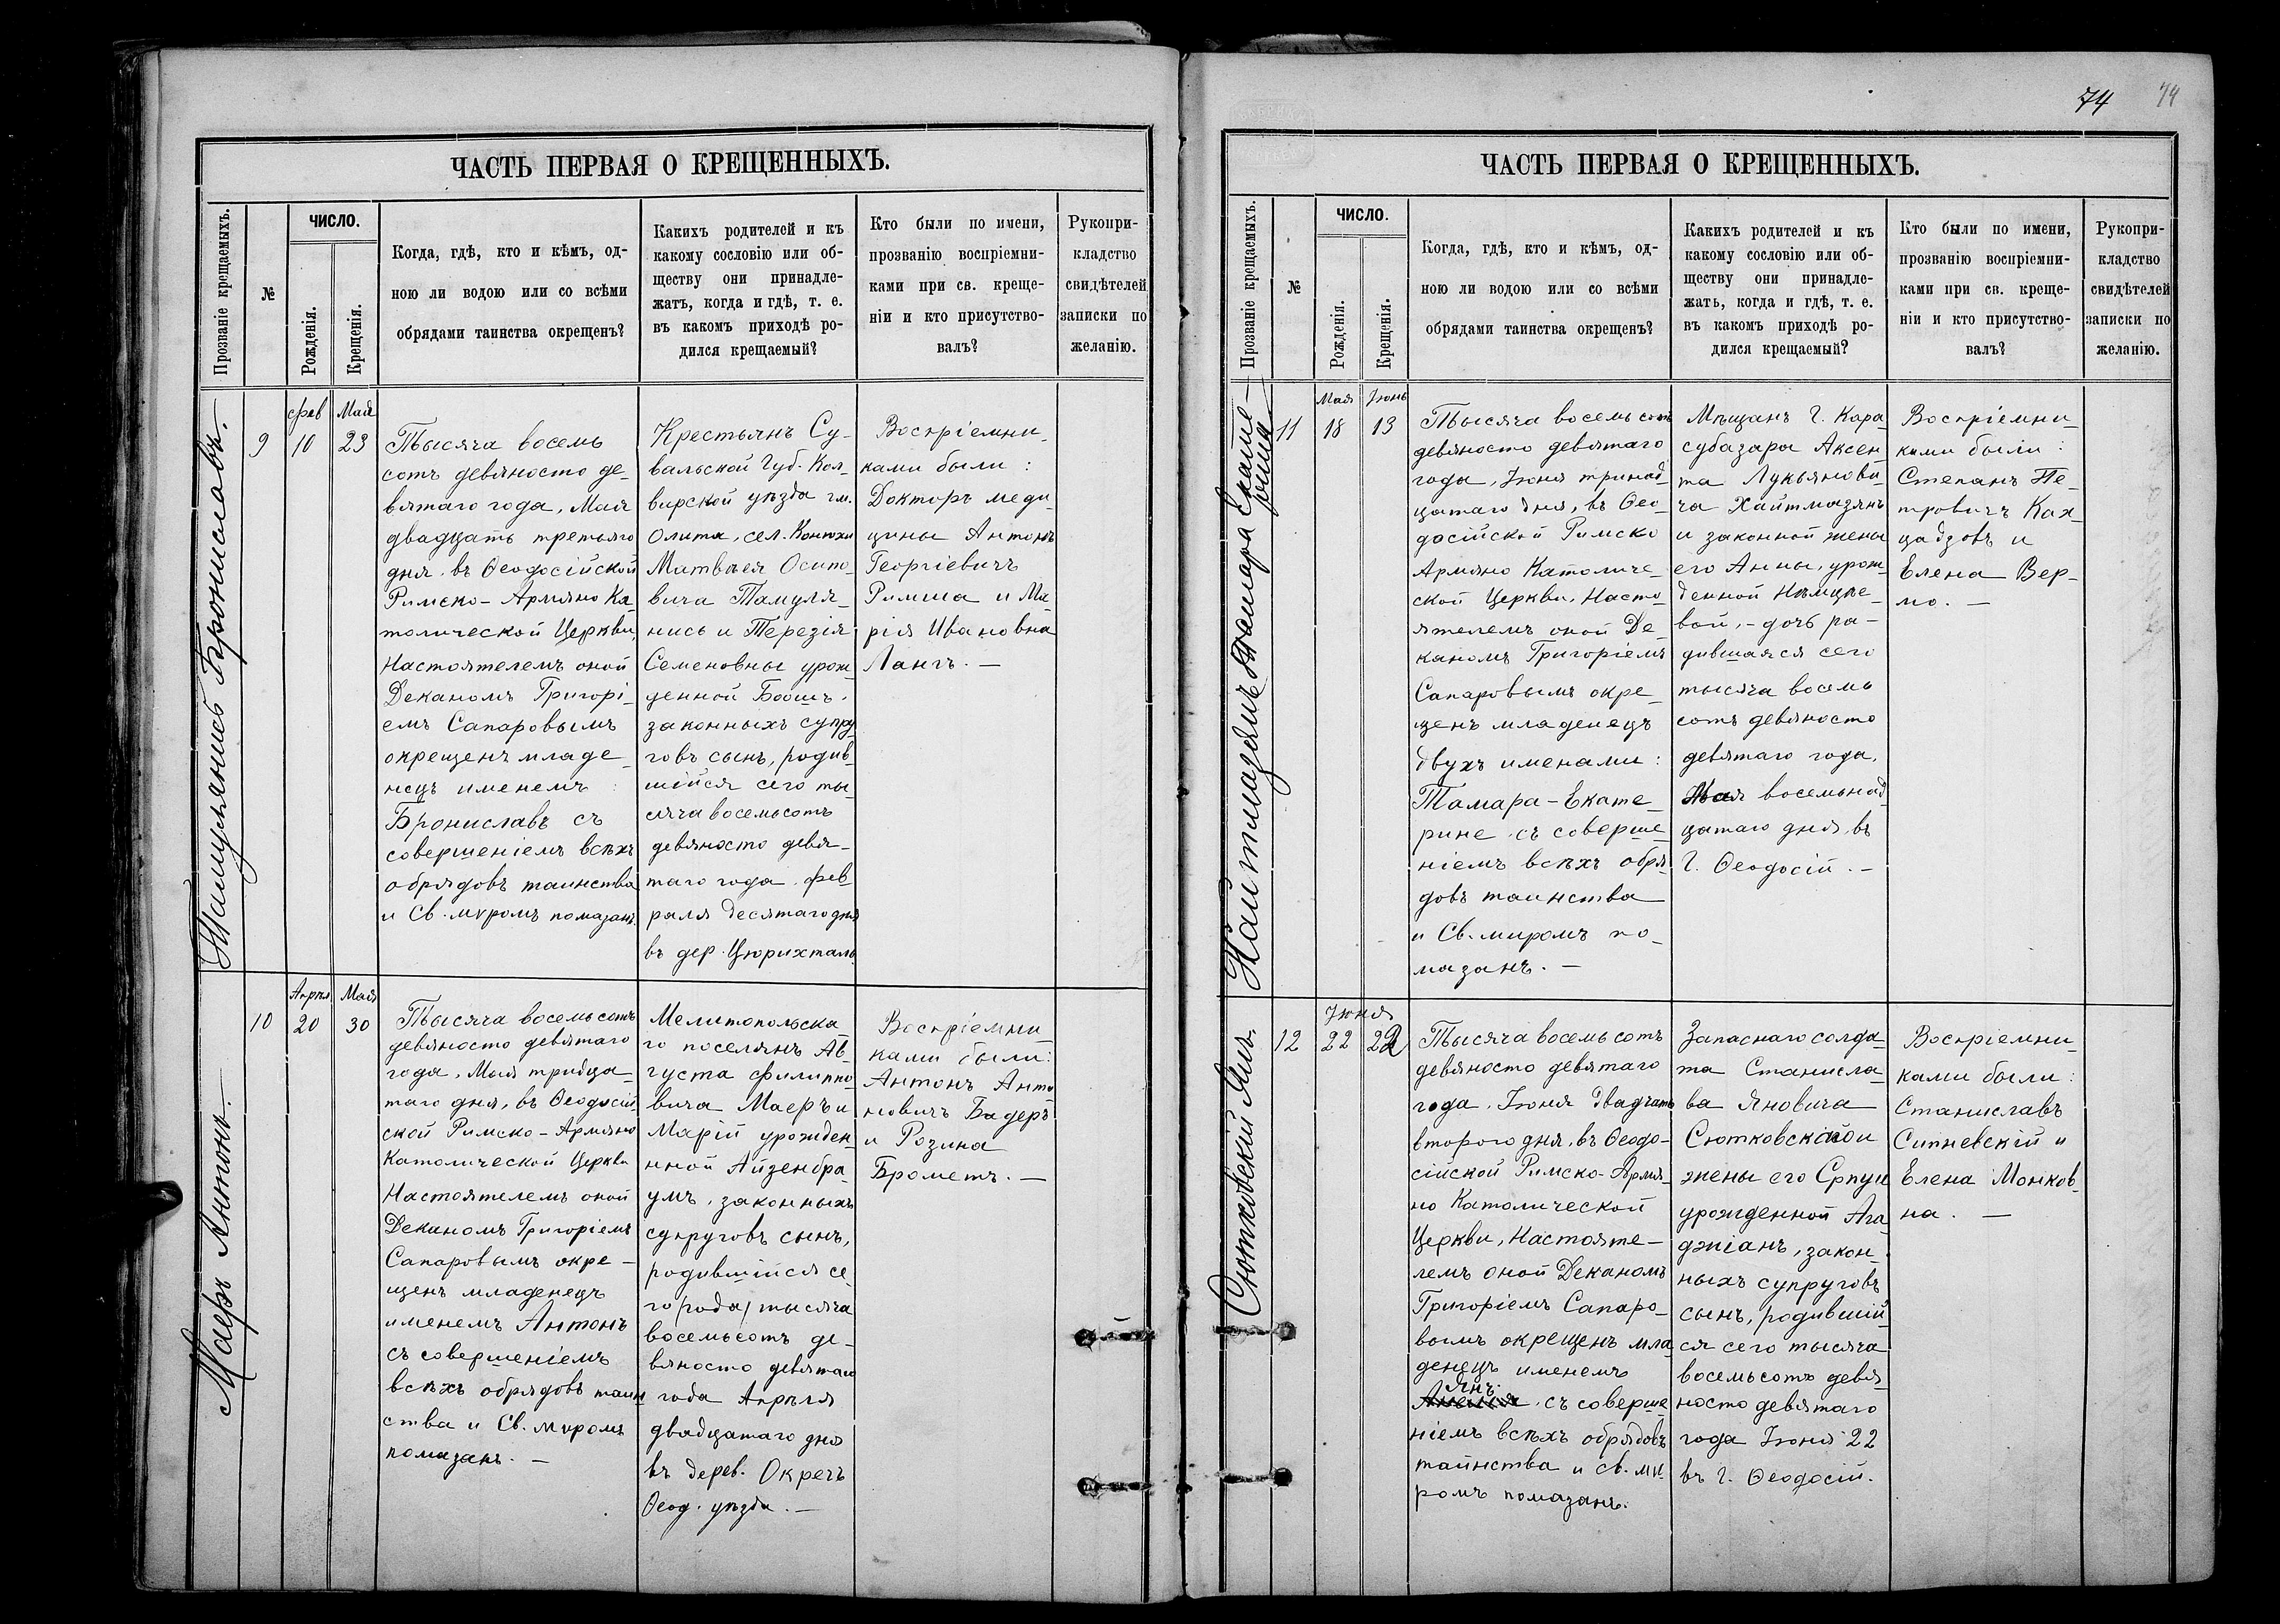 74 74
ЧАСТЬ ПЕРВАЯ О КРЕЩЕННЫХЪ.
Прозваніе крещаемыхъ.
№
ЧИСЛО.
Рожденія.
Крещенія.
Когда, гдѣ, кто и кѣмъ, од-
ною ли водою или со всѣми
обрядами таинства окрещенъ?
Какихъ родителей и къ
какому сословію или об-
ществу они принадле-
жатъ, когда и гдѣ, т. е.
въ какомъ приходѣ ро-
дился крещаемый?
Кто были по имени,
прозванію воспріемни-
ками при св. креще-
ніи и кто присутство-
валъ?
Рукопри-
кладство
свидѣтелей
записки по
желанію.
Тамульянисъ Брониславъ.
9
фев
10
Мая
23
Тысяча восемь
сотъ девяносто де-
вятаго года, Мая
двадцать третьяго
дня, въ Ѳеодосійской
Римско-Армяно Ка-
толической Церкви,
Настоятелемъ оной
Деканомъ Григорі-
емъ Сапаровымъ
окрещенъ младе-
нецъ именемъ :
Брониславъ съ
совершеніемъ всѣхъ
обрядовъ таинства
и Св. мѵромъ помазанъ.
Крестьянъ Су-
вальской Губ. Кал-
варской уѣзда гм.
Олита, сел. Конюхи
Матвѣея Осипо-
вича Тамуля-
нисъ и Терезія
Семеновны урож-
денной
законныхъ супру
говъ сынъ, родив-
шійся сего ты-
сяча восемьсотъ
девяносто девя-
таго года, фев-
раля десятаго дня
въ дер. Цюрихталь
Воспріемни-
ками были :
Докторъ меди-
цины Антонъ
Георгіевичъ
Римша и Ма-
рія Ивановна
Лангъ. —
Маеръ Антонъ.
10
Апрѣл.
20
Мая
30
Тысяча восемьсотъ
девяносто девятаго
года, Мая тридца-
таго дня, въ Ѳеодосій-
ской Римско-Армяно
Католической Церкви
Настоятелемъ оной
Деканомъ Григоріемъ
Сапаровымъ окре-
щенъ младенецъ
именемъ Антонъ
съ совершеніемъ
всѣхъ обрядовъ таин
ства и Св. мѵромъ
помазанъ. —
Мелитопольска-
го поселянъ Ав-
густа Филиппо-
вича Маеръ и
Марій урожден-
нной Айзенбра-
умъ, законныхъ
супруговъ сынъ,
родившійся се-
го /года/ тысяча
восемьсотъ де-
вяносто девятаго
года Апрѣля
двадцатаго дня
въ дерев. Окречъ
Ѳеод. уѣзда. —
Воспріемни-
ками были:
Антонъ Анто
новичъ Бадеръ
и Розина
Брометъ. —
ЧАСТЬ ПЕРВАЯ О КРЕЩЕННЫХЪ.
Прозваніе крещаемыхъ.
№
ЧИСЛО.
Рожденія.
Крещенія.
Когда, гдѣ, кто и кѣмъ, од-
ною ли водою или со всѣми
обрядами таинства окрещенъ?
Какихъ родителей и къ
какому сословію или об-
ществу они принадле-
жатъ, когда и гдѣ, т. е.
въ какомъ приходѣ ро-
дился крещаемый?
Кто были по имени,
прозванію воспріемни-
ками при св. креще-
ніи и кто присутство-
валъ?
Рукопри-
кладство
свидѣтелей
записки по
желанію.
Хаитмазянъ Тамара Екате-
рина
11
Мая
18
Іюнь
13
Тысяча восемьсотъ
девяносто девятаго
года, Іюня тринад-
цатаго дня, въ Ѳео-
досійской Римско
Армяно Католиче-
ской Церкви, Насто-
ятелемъ оной Де-
каномъ Григоріемъ
Сапаровымъ окре-
щенъ младенецъ
двухъ именами :
Тамара-Екате-
рине, съ соверше-
ніемъ всѣхъ обря-
довъ таинства
и Св. миромъ по-
мазанъ. —
Мѣщанъ Г. Кара-
субазара Аксен-
та Лукьянови-
ча Хайтмазянъ
и законной жены
его Анны, урож-
денной Нѣмце-
вой, - дочь ра-
дившаяся сего
тысяча восемь
сотъ девяносто
девятаго года,
Мая восемьнад-
цатаго дня, въ
Г. Ѳеодосій. —
Воспріемни-
ками были :
Степанъ Пе-
тровичъ Ках-
цадзовъ и
Елена Вер-
мо. —
Сютковскій Янъ.
12
Іюня
22 22
Тысяча восемьсотъ
девяносто девятаго
года, Іюня двадцать
второго дня, въ Ѳеодо-
сійской Римско-Армя-
но Католической
Церкви, Настояте-
лемъ оной Деканомъ
Григоріемъ Сапаро-
вымъ окрещенъ мла
денецъ именемъ
Янъ
съ соверше-
ніемъ всѣхъ обрядовъ
таинства и св. мѵ-
ромъ помазанъ.
Запаснаго солда-
та Станисла-
ва Яновича
Сютковскаго и
жены его Српуи
урожденной Ага
джіанъ, закон-
ныхъ супруговъ
сынъ, родившій-
ся сего тысяча
восемьсотъ девя-
носто девятаго
года Іюня 22
въ Г. Ѳеодосій.
Воспріемни-
ками были :
Станиславъ
Сипневскій и
Елена Монков-
на. —